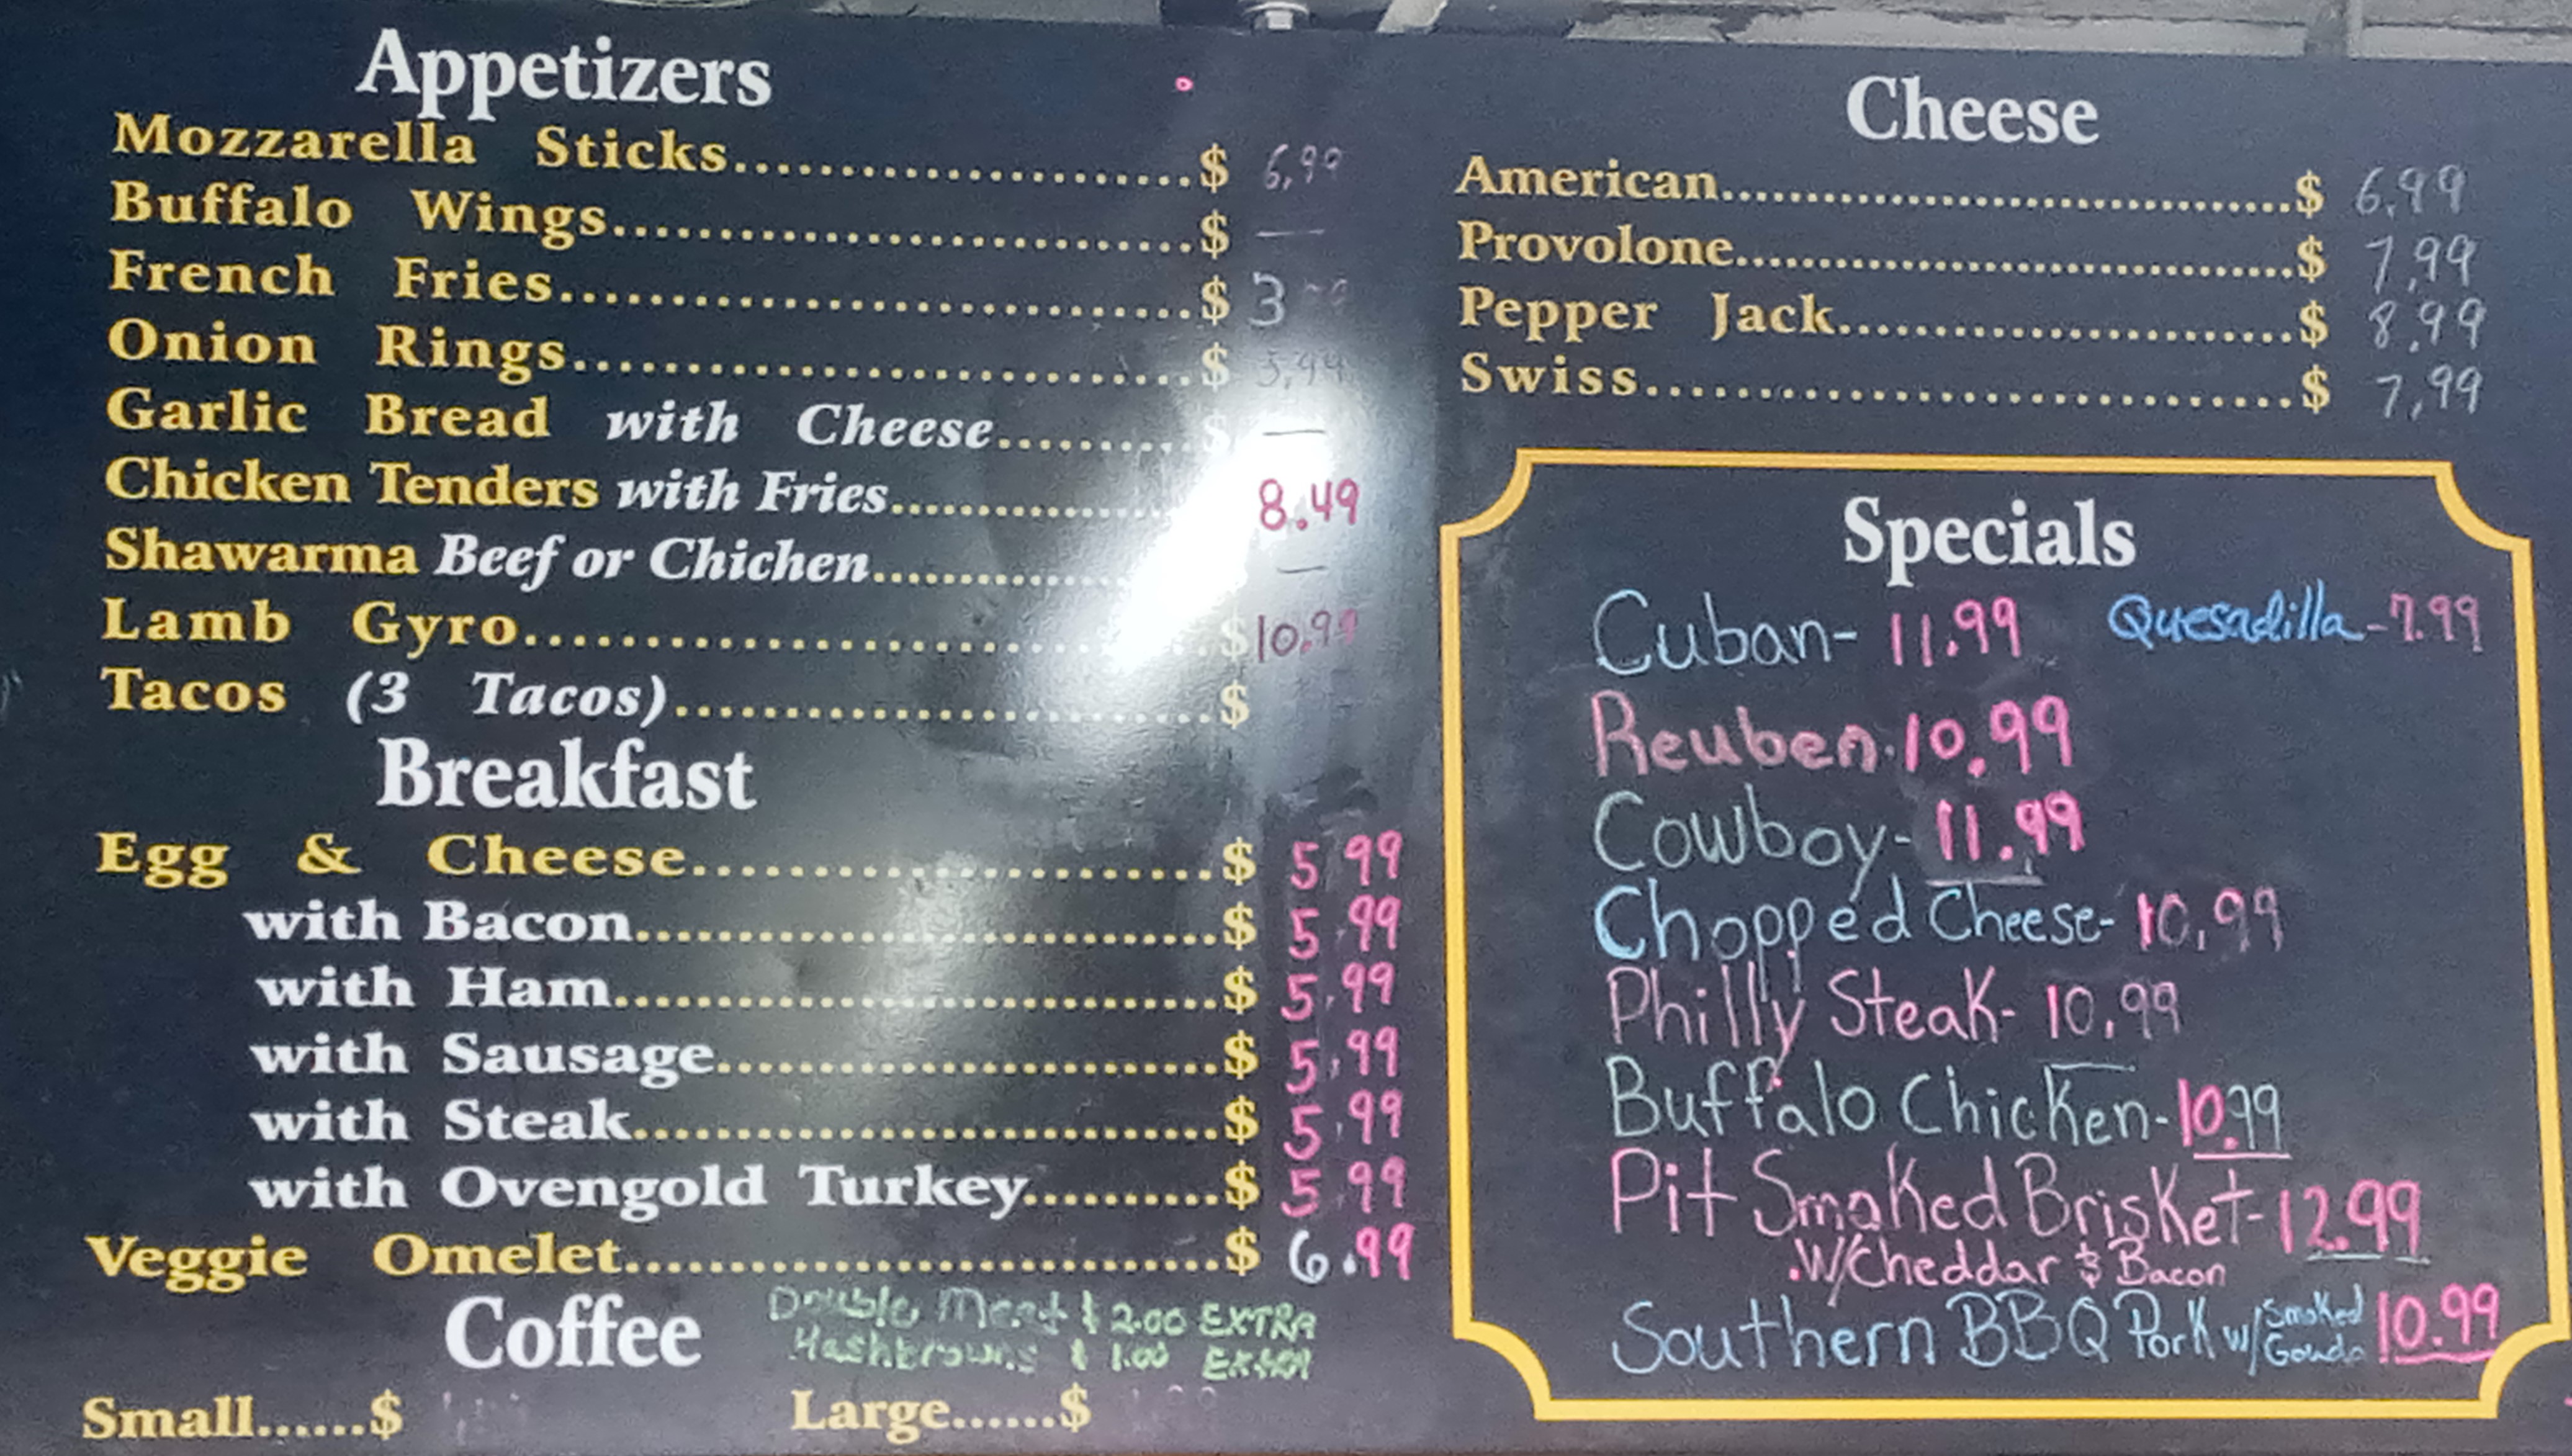 Appetizers
Mozzarella Sticks......................$ 6.99
Buffalo Wings...........................$ —
French Fries.............................$ 3
Onion Rings............................$
Garlic Bread with Cheese..........$ —
Chicken Tenders with Fries............... 8.49
Shawarma Beef or Chichen............... —
Lamb Gyro..............................$ 10.99
Tacos (3 Tacos)........................$
Breakfast
Egg & Cheese.........................$ 5.99
with Bacon............................$ 5.99
with Ham.............................$ 5.99
with Sausage........................$ 5.99
with Steak............................$ 5.99
with Ovengold Turkey..........$ 5.99
Veggie Omelet............................$ 6.99
Coffee
Double Meat $ 2.00 EXTRA
Hashbrowns $ 1.00 EXTRA
Small......$
Large......$
Cheese
American..................................$ 6.99
Provolone.................................$ 7.99
Pepper Jack...........................$ 8.99
Swiss......................................$ 7.99
Specials
Cuban- 11.99 Quesadilla-7.99
Reuben-10.99
Cowboy- 11.99
Chopped Cheese- 10.99
Philly Steak- 10.99
Buffalo Chicken-10.99
Pit Smoked Brisket-12.99
W/Cheddar & Bacon
Southern BBQ Pork w/ Smoked Gouda 10.99